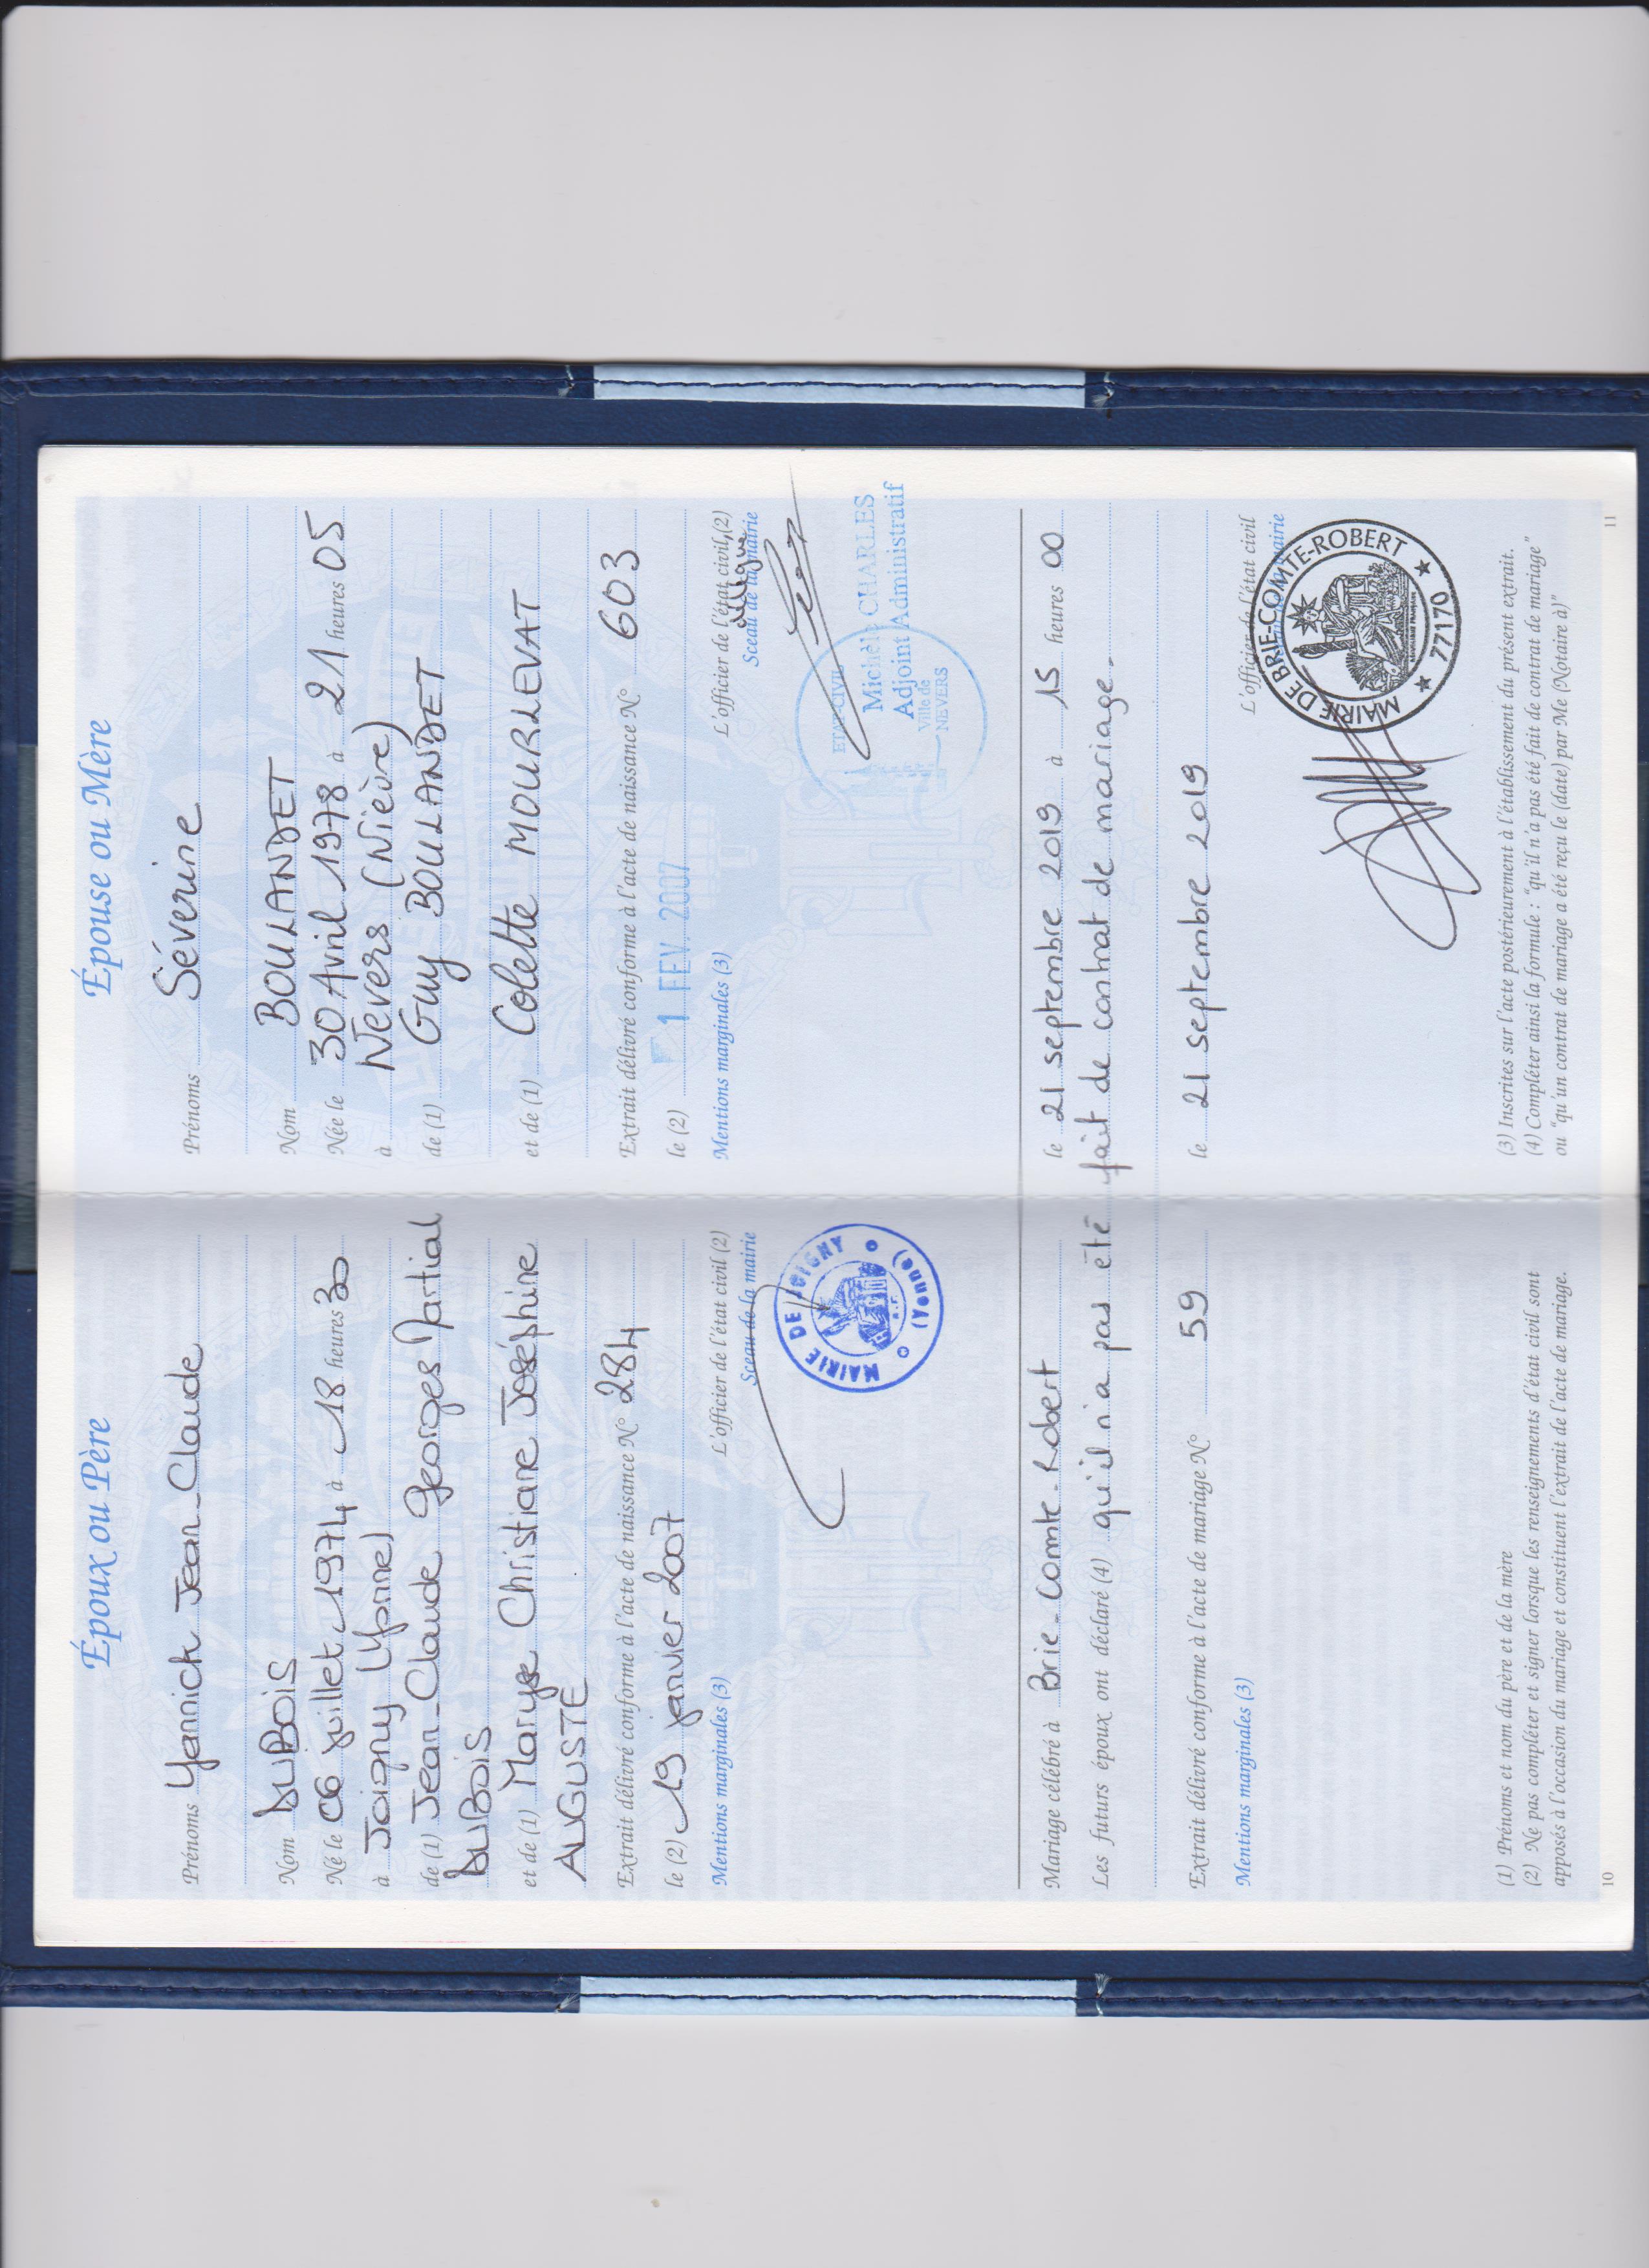 Époux ou Père
Prénoms Yannick Jean-Claude
Nom DUBOIS
Né le 06 juillet 1974 à 18 heures 30
à Joigny (Yonne)
de (1) Jean-Claude Georges Martial
DUBOIS
et de (1) Maryse Christiane Joséphine
AUGUSTE
Extrait délivré conforme à l'acte de naissance N° 284
le (2) 19 janvier 2007
Mentions marginales (3)
L'officier de l'état civil (2)
Sceau de la mairie
MAIRIE DE JOIGNY
(Yonne)
Épouse ou Mère
Prénoms Séverine
Nom BOULANDET
Née le 30 Avril 1978 à 21 heures 05
à Nevers (Nièvre)
de (1) Guy BOULANDET
et de (1) Colette MOURLEVAT
Extrait délivré conforme à l'acte de naissance N° 603
le (2) 1 FEV. 2007
Mentions marginales (3)
L'officier de l'état civil, (2)
Sceau de la mairie
ETAT-CIVIL
Michèle CHARLES
Adjoint Administratif
Ville de
NEVERS
Mariage célébré à Brie-Comte-Robert le 21 septembre 2019 à 15 heures 00
Les futurs époux ont déclaré (4) qu'il n'a pas été fait de contrat de mariage.
Extrait délivré conforme à l'acte de mariage N° 59 le 21 septembre 2019
Mentions marginales (3)
L'officier de l'état civil
mairie
MAIRIE DE BRIE-COMTE-ROBERT
77170
(1) Prénoms et nom du père et de la mère
(2) Ne pas compléter et signer lorsque les renseignements d'état civil sont
apposés à l'occasion du mariage et constituent l'extrait de l'acte de mariage.
10
(3) Inscrites sur l'acte postérieurement à l'établissement du présent extrait.
(4) Compléter ainsi la formule : "qu'il n'a pas été fait de contrat de mariage"
ou "qu'un contrat de mariage a été reçu le (date) par Me (Notaire à)"
11